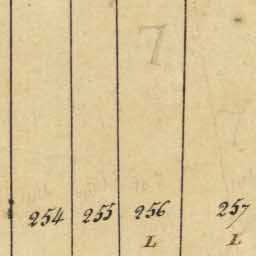 7
254 255 256 257
L L